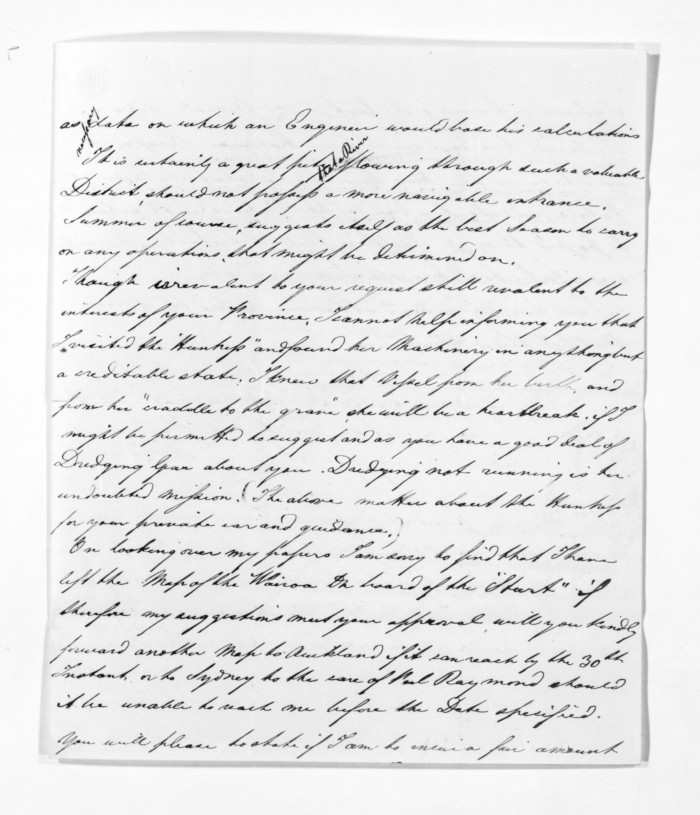 as necessary data on which an Engineer would base his calculations
It is certainly a great pity that a River flowing through such a valuable
District, should not possess a more navigable entrance.
Summer of course, suggests itself as the best Season to carry
on any operations, that might be determined on.
Though irrevalent to your request still revalent to the
interests of your Province, I cannot help informing you that
I visited the "Huntress" and found her Machinery in anything but
a creditable state. I knew that Vessel from her birth, and
from her "craddle to the grave" she will be a heartbreak, if I
might be permitted to suggest and as you have a good deal of
Dredging Gear about you. Dredging not running is her
undoubted mission. (The above matter about the Huntress
for your private ear and guidance.)
On looking over my papers I am sorry to find that I have
left the Map of the Wairoa on board of the "Sturt" if
therefore my suggestions meet your approval, will you kindly
forward another Map to Auckland if it can reach by the 30th
Instant, or to Sydney to the care of Raymond should
it be unable to reach me before the Date specified.
You will please to state if I am to incur a fair amount